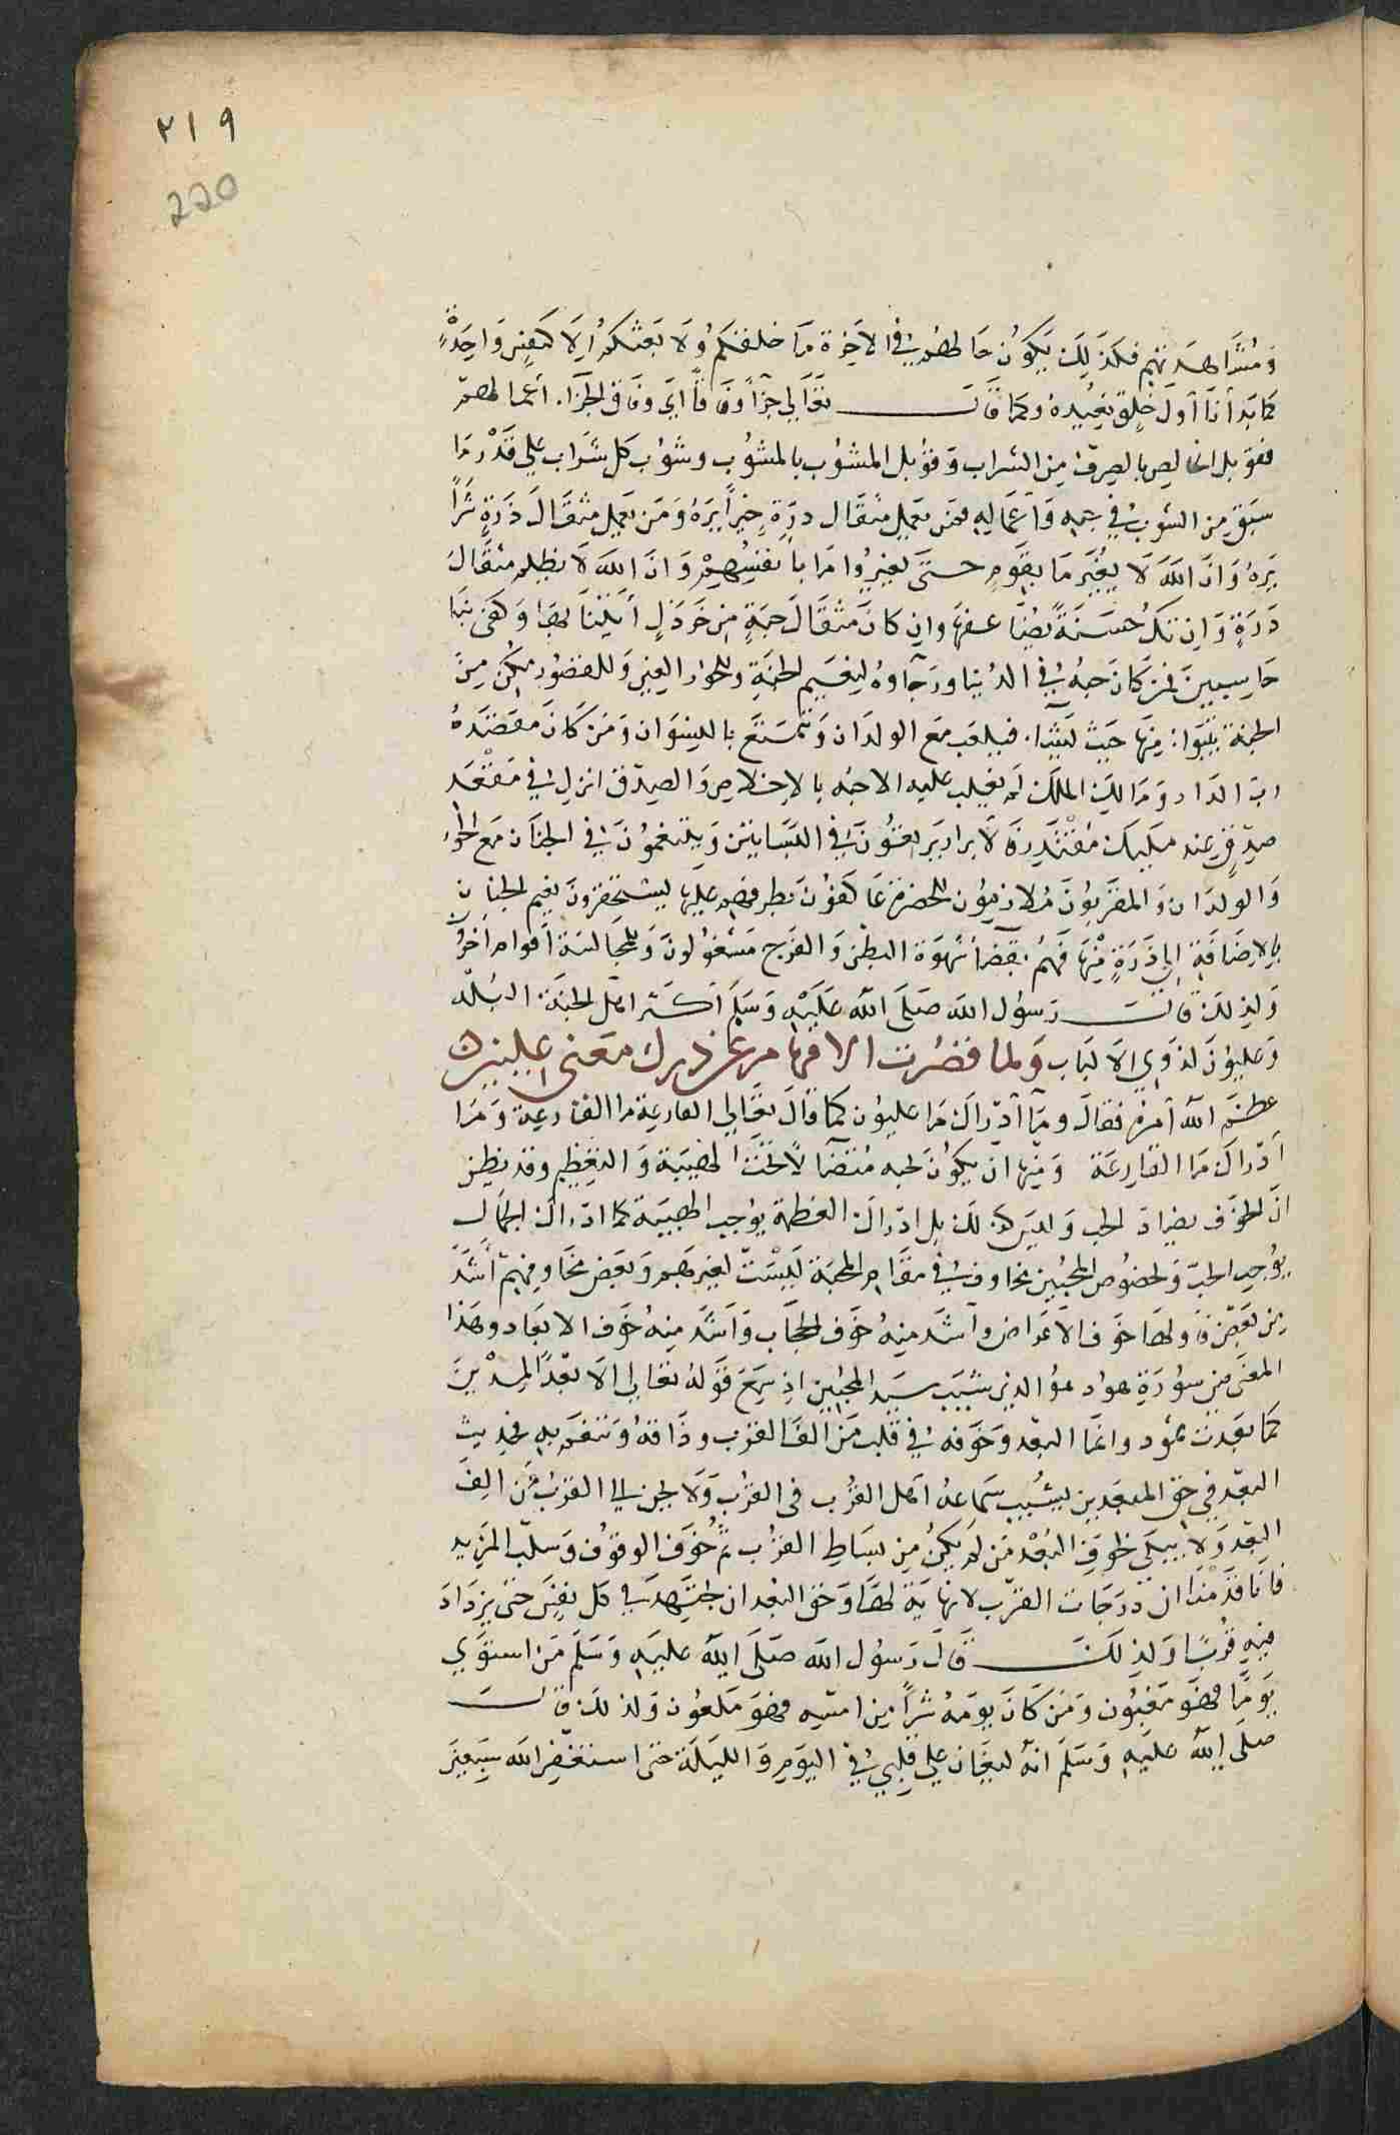 ٢١٩
220
ومشاهدتهم فكذلك يكون حالهم في الآخرة ما خلقكم ولا بعثكم الا كنفس واحدة
كما بدأنا أول خلق نعيده وكما قال تعالى جزاءً وفاقا اي وافق الجزاء اعمالهم
فقوبل الخالص بالصرف من الشراب وقوبل المشوب بالمشوب وشوب كل شراب على قدر ما
سبق من الشوب في حبه واعماله فمن يعمل مثقال ذرة خيراً يره ومن يعمل مثقال ذرة شراً
يره وان الله لا يغير ما بقوم حتى يغيروا ما بانفسهم وان الله لا يظلم مثقال
ذرة وان تك حسنة يضاعفها وان كان مثقال حبة من خردل أتينا بها وكفى بنا
حاسبين فمن كان حبه في الدنيا ورجاؤه لنعيم الجنة وللحور العين وللقصور مكن من
الجنة يتبوأ منها حيث يشاء فيلعب مع الولدان ويتمتع بالنسوان ومن كان مقصده
رب الدار ومالك الملك لم يغلب عليه الا حبه بالاخلاص والصدق انزل في مقعد
صدق عند مليك مقتدر فالابرار يرتعون في البساتين ويتنعمون في الجنان مع الحور
والولدان والمقربون ملازمون للحضرة عاكفون بطرفهم عليها يستحقرون نعيم الجنان
بالاضافة الى ذرة منها فهم بقضاء شهوة البطن والفرج مشغولون وللمجالسة أقوام أخرون
ولذلك قال رسول الله صلى الله عليه وسلم أكثر اهل الجنة البله
وعليون لذوي الالباب ولما قصرت الافهام عن درك معنى عليين
عظم الله أمره فقال وما أدراك ما عليون كما قال تعالى القارعة ما القارعة وما
أدراك ما القارعة ومنها ان يكون لحبه متضائلا تحت الهيبة والتعظيم وقد يظن
ان الخوف يضاد الحب وليس كذلك بل ادراك العظمة يوجب الهيبة كما ادراك الجمال
يوجب الحب ولخصوص المحبين مخاوف في مقام المحبة ليست لغيرهم وبعض مخاوفهم أشد
من بعض فاولها خوف الاعراض وأشد منه خوف الحجاب وأشد منه خوف الابعاد وهذا
المعنى من سورة هود هو الذي شيب سيد المحبين اذ سمع قوله تعالى الا بعداً لمدين
كما بعدت ثمود وانما البعد وخوفه في قلب من الف القرب وذاقه وتنعم به فحديث
البعد في حق المبعدين يشيب سماعه اهل القرب في القرب ولا يحن الى القرب من الف
البعد ولا يبكي لخوف البعد من لم يكن من بساط القرب ثم خوف الوقوف وسلب المزيد
فانا قدمنا ان درجات القرب لا نهاية لها وحق العبد ان يجتهد في كل نفس حتى يزداد
فيه قربًا ولذلك قال رسول الله صلى الله عليه وسلم من استوى
يوماه فهو مغبون ومن كان يومه شراً من امسه فهو ملعون ولذلك قال
صلى الله عليه وسلم انه ليغان على قلبي في اليوم والليلة حتى استغفر الله سبعين